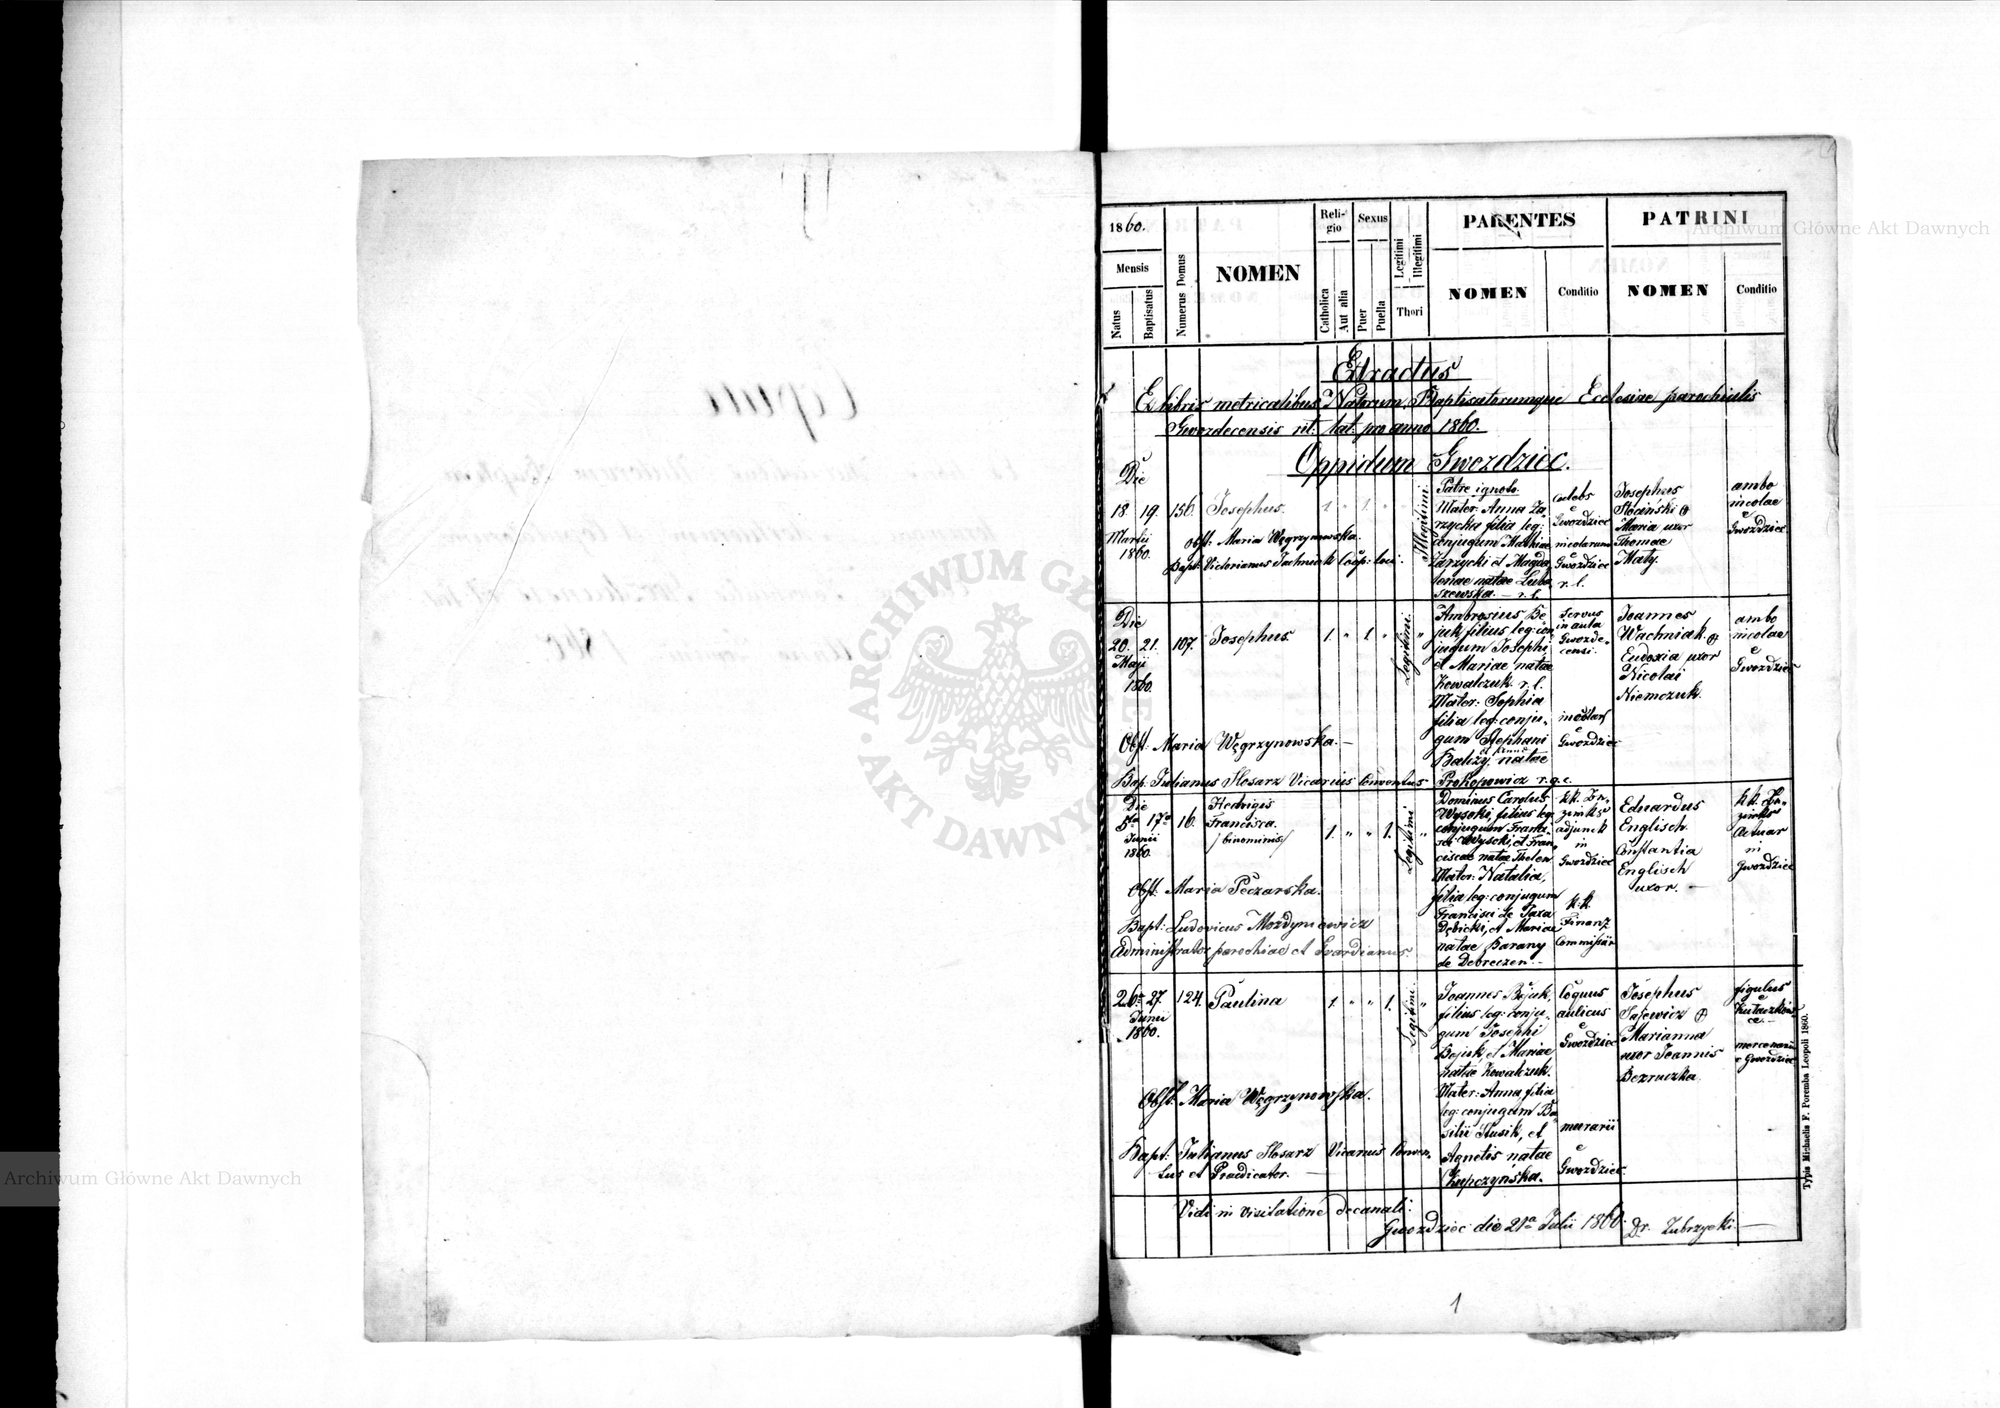 Archiwum Główne Akt Dawnych
1860.
Mensis
Natus
Baptisatus
Numerus Domus
NOMEN
Religio
Catholica
Aut alia
Sexus
Puer
Puella
Legitimi
Illegitimi
Thori
PARENTES
NOMEN
Conditio
PATRINI
NOMEN
Conditio
Extractus
Ex libris metricalibus Natorum, Baptisatorumque Eclesiae parochialis
Gwozdecensis rit: lat: pro anno 1860.
Oppidum Gwozdziec.
Die
18. 19 156. Josephus. 1 " 1 "
Martii
1860.
Obst: Maria Węgrzynowska.
Bapt: Victorianus Jachnick Coop: loci.
Illegitimi.
Patre ignoto.
Mater: Anna Za-
rzycka filia leg:
conjugum Mathiae
Zarzycki et Magda
lenae natae Luba
szewska. — r. l.
Coelebs
e
Gwozdziec
incolarum
e
Gwozdziec
r. l.
Josephus
Słociński &
Maria uxor
Thomae
Mały.
ambo
incolae
e
Gwozdziec
Die
20. 21. 107. Josephus 1. " 1. "
Maji
1860.
Legitimi. "
Obst: Maria Węgrzynowska. —
Bap. Julianus Slosarz Vicarius Conventus
Ambrosius Be
juk filius leg: con
jugum Josephi
et Mariae natae
Kowalczuk r. l.
Mater: Sophia
filia leg: conju-
gum Stephani
Balizy, natae
Prokopowicz r. g. c.
Servus
in aula
Gwozde-
censi.
incolarum
e
Gwozdziec
Joannes
Wachniak. &
Eudoxia uxor
Nicolai
Niemczuk.
ambo
incolae
e
Gwozdziec
Die
5ta 17a 16. Hedvigis
Junii Francisca.
1860. /binominis/
1. " " 1.
Legitimi "
Obst: Maria Peczarska.
Bapt: Ludovicus Mozdyniewicz
Administrator parochiae et Gvardianus.
Dominus Carolus
Wysoki, filius leg:
conjugum Franci
sci Wysocki, et Fran
ciscae natae Thelen
Mater: Natalia,
filia leg: conjugum
Francisci de Saxa
Dębicki, et Mariae
natae Barany
de Debreczen. —
k.k. Be-
zirks
adjunct
in
Gwozdziec
k.k.
Finanz
Commissär
Eduardus
Englisch
Constantia
Englisch
uxor. —
k.k. Be-
zirks
Actuar
in
Gwozdziec
26a 27. 124. Paulina 1. " " 1.
Junii
1860.
Legitimi. "
Obst: Maria Węgrzynowska.
Bapt: Julianus Slosarz Vicarius Conven-
tus et Praedicator. —
Joannes Bejuk,
filius leg: conju-
gum Josephi
Bejuk, et Mariae,
natae Kowalczuk.
Mater: Anna filia
leg: conjugum Ba-
silii Stusik, et
Agnetis natae
Chupczyńska.
Coquus
aulicus
e
Gwozdziec
murarii
e
Gwozdziec.
Josephus
Sajewicz &
Marianna
uxor Joannis
Bezruczka.
figulus
e
mercenarii
e Gwozdziec
Vidi in visitatione decanali.
Gwozdziec die 21a Julii 1860. Dr. Zubrzycki. —
Typis Michaelis F. Poremba Leopoli 1860.
1
ARCHIWUM GŁÓWNE AKT DAWNYCH
Archiwum Główne Akt Dawnych